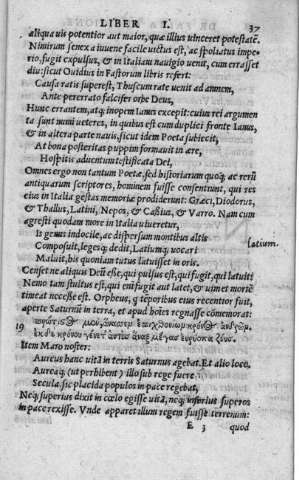 LIBER I.
37
aliqua uis potentior aut maior, quæ illius uinceret potestatē.
Nimirum senex à iuuene facile uictus est, ac spoliatus impe-
rio, fugit expulsus, & in Italiam nauigio uenit, cum errasset
diu: sicut Ouidius in Fastorum libris refert:
Causa ratis superest, Thuscum rate uenit ad amnem,
Ante pererrato falcifer orbe Deus,
Hunc errantem, atq; inopem Ianus excepit: cuius rei argumen
ta sunt numi ueteres, in quibus est cum duplici fronte Ianus,
& in altera parte nauis, sicut idem Poeta subiecit,
At bona posteritas puppim formauit in ære,
Hospitis aduentum testificata Dei,
Omnes ergo non tantum Poetæ, sed historiarum quoq; ac rerū
antiquarum scriptores, hominem fuisse consentiunt, qui res
eius in Italia gestas memoriæ prodiderunt: Græci, Diodorus,
& Thallus, Latini, Nepos, & Casius, & Varro. Nam cum
agresti quodam more in Italia uiueretur,
Is genus indocile, ac dispersum montibus altis
Composuit, legesq; dedit, Latiumq; uocari
Latium.
Maluit, his quoniam tutus latuisset in oris.
Censet ne aliquis Deū esse, qui pulsus est, qui fugit, qui latuit?
Nemo tam stultus est, qui enim fugit aut latet, & uim et mortē
timeat necesse est. Orpheus, q̃ tēporibus eius recentior fuit,
aperte Saturnū in terra, et apud hoīes regnasse cōmemorat:
19
Item Maro noster:
Aureus hanc uitā in terris Saturnus agebat. Et alio loco,
Aureaq; (ut perhibent) illo sub rege fuere
Secula, sic placida populos in pace regebat,
Neq; superius dixit in cœlo egisse uitā, neq; inferius superos
in pace rexisse. Vnde apparet illum regem fuisse terrenum:
E 3 quod